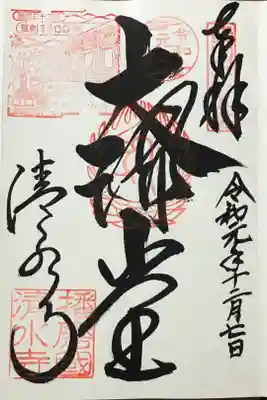 奉拝
令和元年十二月七日
大講堂
清水寺
播磨國
清水寺